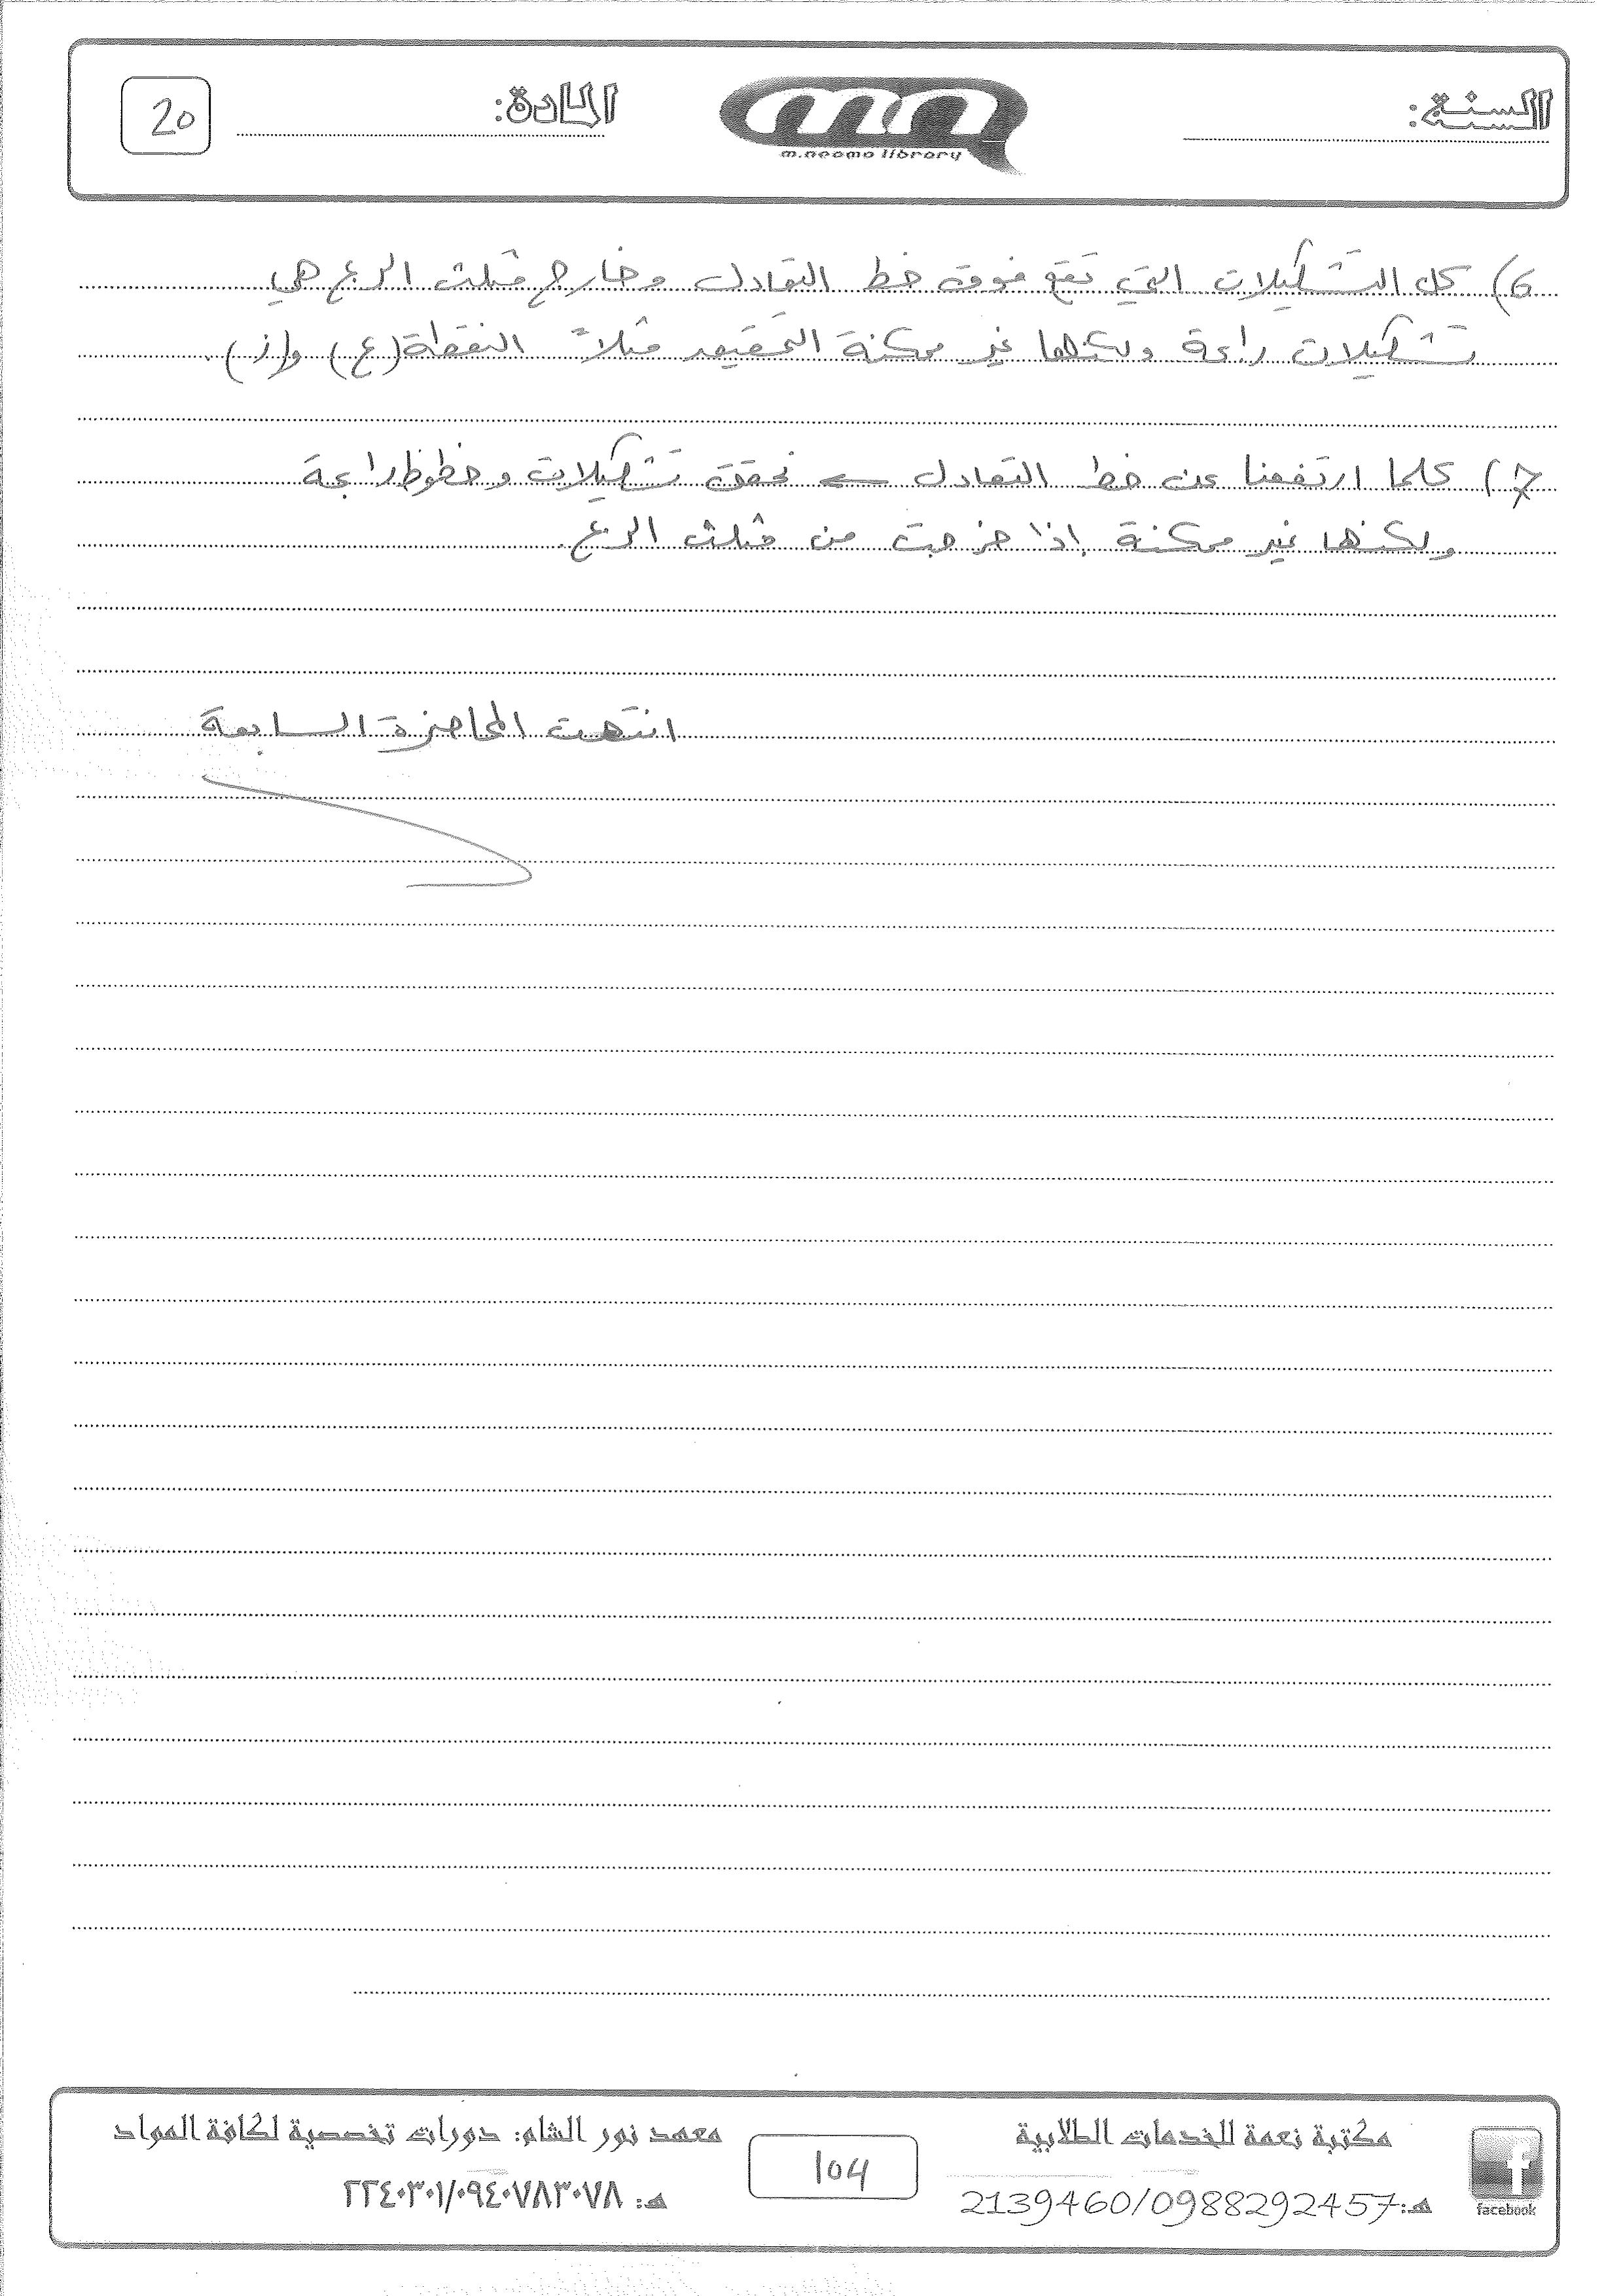 السنة:
m.neama library
المادة:
20
6) كل التشكيلات التي تقع فوق خط التعادل وخارج مثلث الربح هي
تشكيلات رابحة ولكنها غير ممكنة التحقيق مثلاً النقطة (ع) و(ز).
7) كلما ارتفعنا عن خط التعادل ← نحقق تشكيلات وخطوط رابحة
ولكنها غير ممكنة إذا خرجت من مثلث الربح.
انتهت المحاضرة السابعة
مكتبة نعمة للخدمات الطلابية
هـ:2139460/0988292457
facebook
104
معهد نور الشام: دورات تخصصية لكافة المواد
هـ: ٢٢٤٠٣٠١/٠٩٤٠٧٨٣٠٧٨